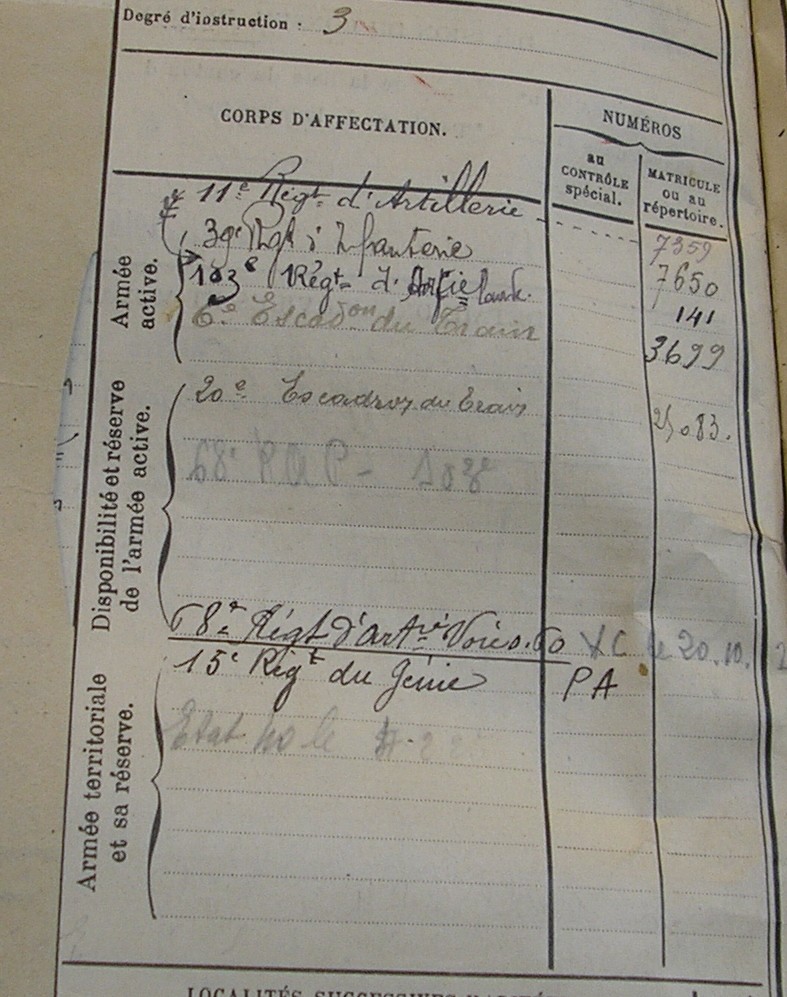 Degré d'instruction : 3
CORPS D'AFFECTATION.
NUMÉROS
au
CONTRÔLE
spécial.
MATRICULE
ou au
répertoire.
Armée
active.
11e Régt d'Artillerie
7359
39e Rgt d'Infanterie
7650
103e Régt d'Artie Lourde.
141
6e Escadon du Train
3699
Disponibilité et réserve
de l'armée active.
20e Escadron du Train
25083.
68e RAP - 103e
68e Régt d'artrie Voie 0.60
XC le 20.10.2
Armée territoriale
et sa réserve.
15e Régt du Génie
PA
Etat le